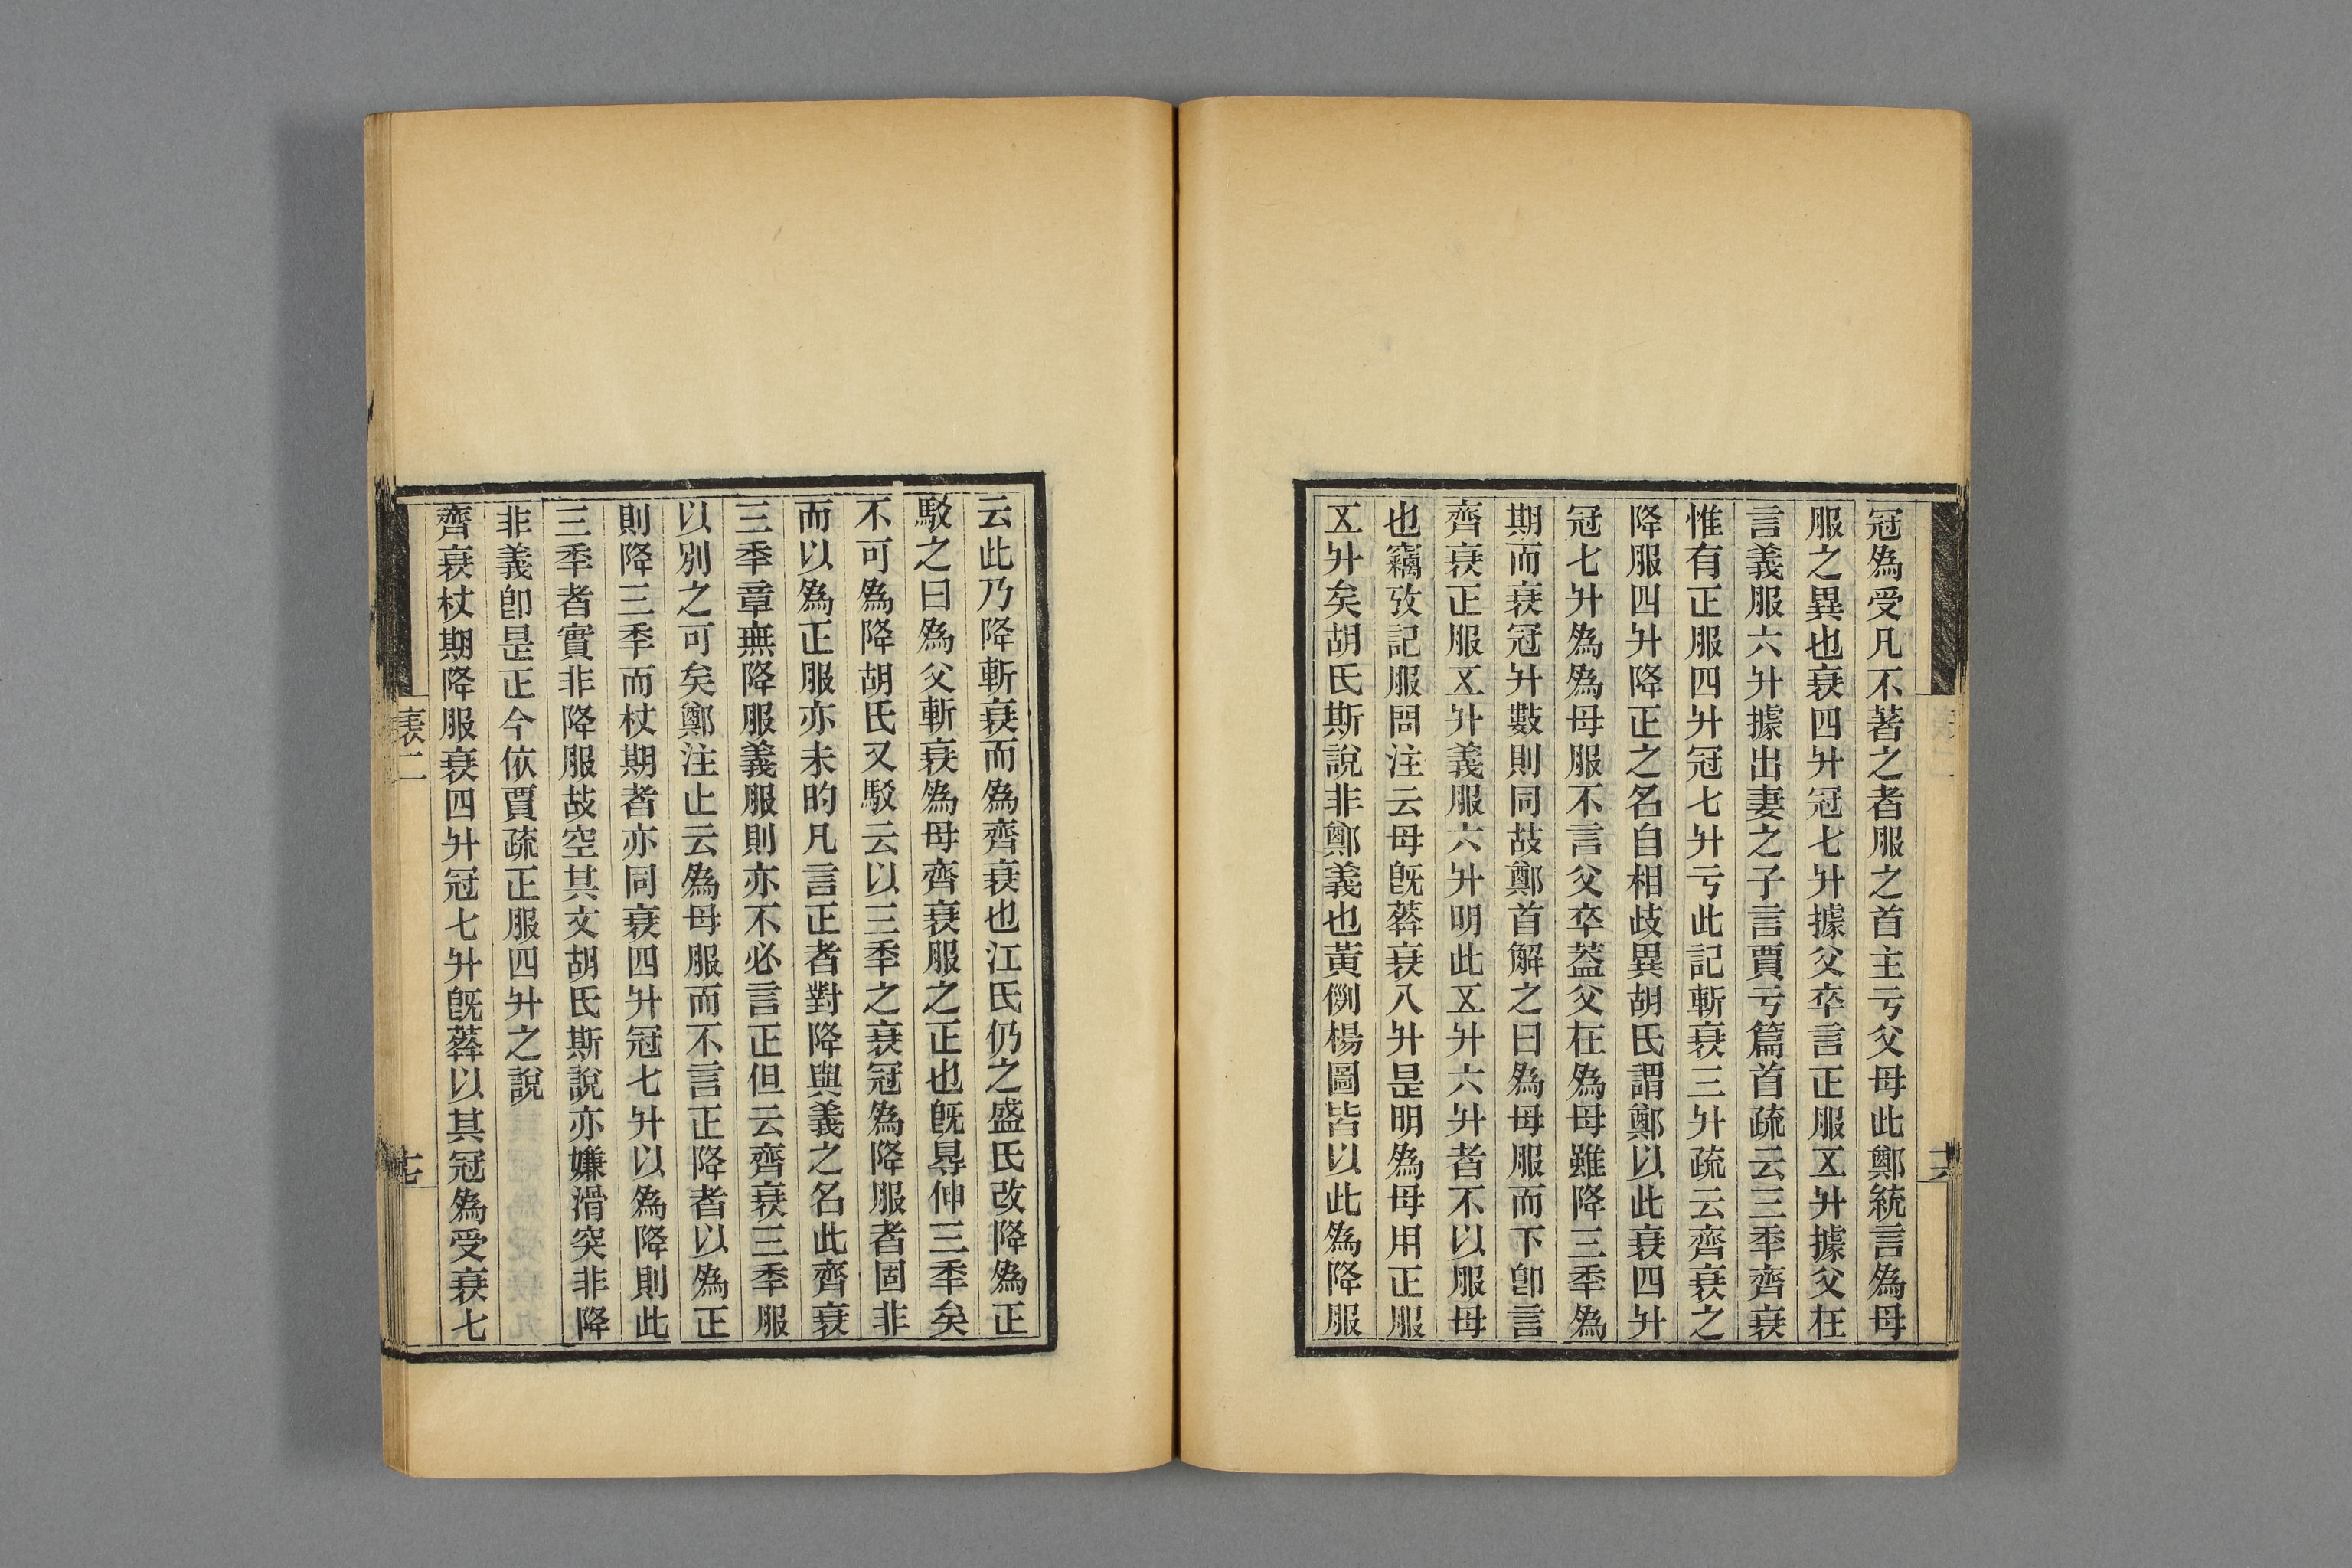 冠爲受凡不著之者服之首主亏父母此鄭統言爲母
服之異也衰四升冠七升據父卒言正服㐅升據父在
言義服六升據出妻之子言賈亏篇首疏云三秊齊衰
惟有正服四升冠七升亏此記斬衰三升疏云齊衰之
降服四升降正之名自相歧異胡氏謂鄭以此衰四升
冠七升爲爲母服不言父卒葢父在爲母雖降三秊爲
期而衰冠升數則同故鄭首解之曰爲母服而下卽言
齊衰正服㐅升義服六升明此㐅升六升者不以服母
也竊攷記服問注云母旣葬衰八升是明爲母用正服
㐅升矣胡氏斯說非鄭義也黃㓮楊圖皆以此爲降服
十六
云此乃降斬衰而爲齊衰也江氏仍之盛氏改降爲正
駁之曰爲父斬衰爲母齊衰服之正也旣㝵伸三秊矣
不可爲降胡氏又駁云以三秊之衰冠爲降服者固非
而以爲正服亦未昀凡言正者對降與義之名此齊衰
三秊章無降服義服則亦不必言正但云齊衰三秊服
以別之可矣鄭注止云爲母服而不言正降者以爲正
則降三秊而杖期者亦同衰四升冠七升以爲降則此
三秊者實非降服故空其文胡氏斯說亦嫌滑突非降
非義卽是正今依賈疏正服四升之說
齊衰杖期降服衰四升冠七升旣葬以其冠爲受衰七
表二
十七